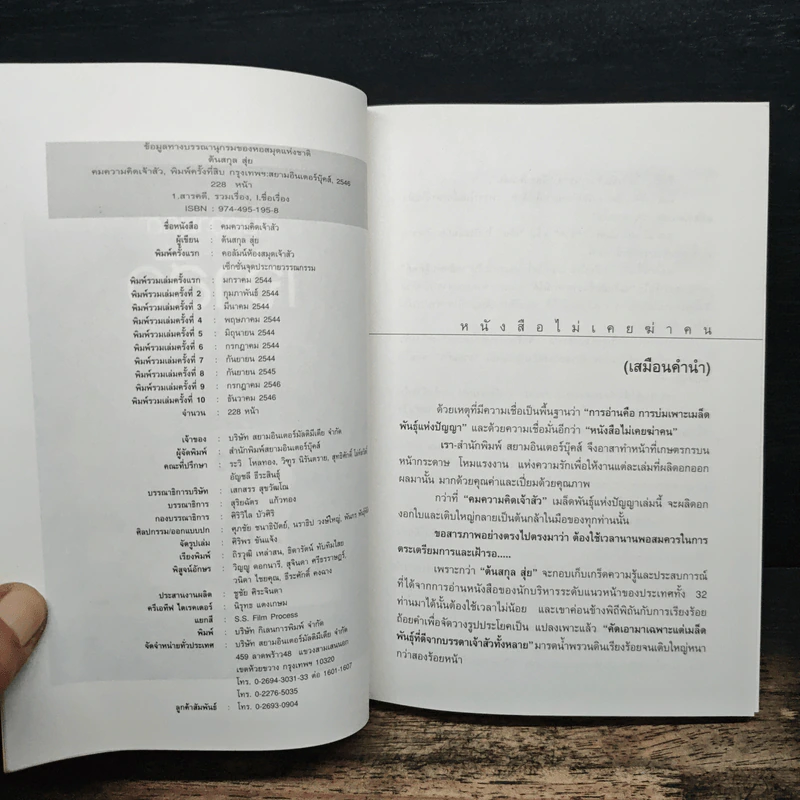 ข้อมูลทางบรรณานุกรมของหอสมุดแห่งชาติ
ต้นสกุล สุ่ย
คมความคิดเจ้าสัว, พิมพ์ครั้งที่สิบ กรุงเทพฯ:สยามอินเตอร์บุ๊คส์, 2546
228 หน้า
1.สารคดี, รวมเรื่อง, I.ชื่อเรื่อง
ISBN : 974-495-195-8
ชื่อหนังสือ : คมความคิดเจ้าสัว
ผู้เขียน : ต้นสกุล สุ่ย
พิมพ์ครั้งแรก : คอลัมน์ห้องสมุดเจ้าสัว
เซ็กชั่นจุดประกายวรรณกรรม
พิมพ์รวมเล่มครั้งแรก : มกราคม 2544
พิมพ์รวมเล่มครั้งที่ 2 : กุมภาพันธ์ 2544
พิมพ์รวมเล่มครั้งที่ 3 : มีนาคม 2544
พิมพ์รวมเล่มครั้งที่ 4 : พฤษภาคม 2544
พิมพ์รวมเล่มครั้งที่ 5 : มิถุนายน 2544
พิมพ์รวมเล่มครั้งที่ 6 : กรกฎาคม 2544
พิมพ์รวมเล่มครั้งที่ 7 : กันยายน 2544
พิมพ์รวมเล่มครั้งที่ 8 : กันยายน 2545
พิมพ์รวมเล่มครั้งที่ 9 : กรกฎาคม 2546
พิมพ์รวมเล่มครั้งที่ 10 : ธันวาคม 2546
จำนวน : 228 หน้า
เจ้าของ : บริษัท สยามอินเตอร์มัลติมีเดีย จำกัด
ผู้จัดพิมพ์ : สำนักพิมพ์สยามอินเตอร์บุ๊คส์
คณะที่ปรึกษา : ระวิ โหลทอง, วิฑูร นิรันตราย, สุทธิศักดิ์
อัญชลี ธีระสินธุ์
บรรณาธิการบริษัท : เสกสรร สุขวัฒโน
บรรณาธิการ : สุริยฉัตร แก้วทอง
กองบรรณาธิการ : ศิริวิไล บัวศิริ
ศิลปกรรม/ออกแบบปก : ศุภชัย ชนาธิปัตย์, นราธิป วงษ์ใหญ่,
จัดรูปเล่ม : ศิริพร ขันแจ้ง
เรียงพิมพ์ : ถิรวุฒิ เหล่าสน, ธิดารัตน์ ทับทิมใสย
พิสูจน์อักษร : วิญญู ดอกนารี, สุจินดา ศรีธราษฎร์,
วนิดา ไชยคุณ, ธีระศักดิ์ คงฉาง
ประสานงานผลิต : ชูชัย ศิระจินดา
ครีเอทีฟ ไดเรคเตอร์ : นิรุทธ แดงเกษม
แยกสี : S.S. Film Process
พิมพ์ : บริษัท กิเลนการพิมพ์ จำกัด
จัดจำหน่ายทั่วประเทศ : บริษัท สยามอินเตอร์มัลติมีเดีย จำกัด
459 ลาดพร้าว48 แขวงสามเสนนอก
เขตห้วยขวาง กรุงเทพฯ 10320
โทร. 0-2694-3031-33 ต่อ 1601-1607
โทร. 0-2276-5035
ลูกค้าสัมพันธ์ : โทร. 0-2693-0904
หนังสือไม่เคยฆ่าคน
(เสมือนคำนำ)
ด้วยเหตุที่มีความเชื่อเป็นพื้นฐานว่า “การอ่านคือ การบ่มเพาะเมล็ด
พันธุ์แห่งปัญญา” และด้วยความเชื่อมั่นอีกว่า “หนังสือไม่เคยฆ่าคน”
เรา-สำนักพิมพ์ สยามอินเตอร์บุ๊คส์ จึงอาสาทำหน้าที่เกษตรกรบน
หน้ากระดาษ โหมแรงงาน แห่งความรักเพื่อให้งานแต่ละเล่มที่ผลิตดอกออก
ผลมานั้น มากด้วยคุณค่าและเปี่ยมด้วยคุณภาพ
กว่าที่ “คมความคิดเจ้าสัว” เมล็ดพันธุ์แห่งปัญญาเล่มนี้ จะผลิดอก
งอกใบและเติบใหญ่กลายเป็นต้นกล้าในมือของทุกท่านนั้น
ขอสารภาพอย่างตรงไปตรงมาว่า ต้องใช้เวลานานพอสมควรในการ
ตระเตรียมการและเฝ้ารอ.....
เพราะกว่า “ต้นสกุล สุ่ย” จะกอบเก็บเกร็ดความรู้และประสบการณ์
ที่ได้จากการอ่านหนังสือของนักบริหารระดับแนวหน้าของประเทศทั้ง 32
ท่านมาได้นั้นต้องใช้เวลาไม่น้อย และเขาค่อนข้างพิถีพิถันกับการเรียงร้อย
ถ้อยคำเพื่อจัดวางรูปประโยคเป็น แปลงเพาะแล้ว “คัดเอามาเฉพาะแต่เมล็ด
พันธุ์ที่ดีจากบรรดาเจ้าสัวทั้งหลาย” มารดน้ำพรวนดินเรียงร้อยจนเติบใหญ่หนา
กว่าสองร้อยหน้า